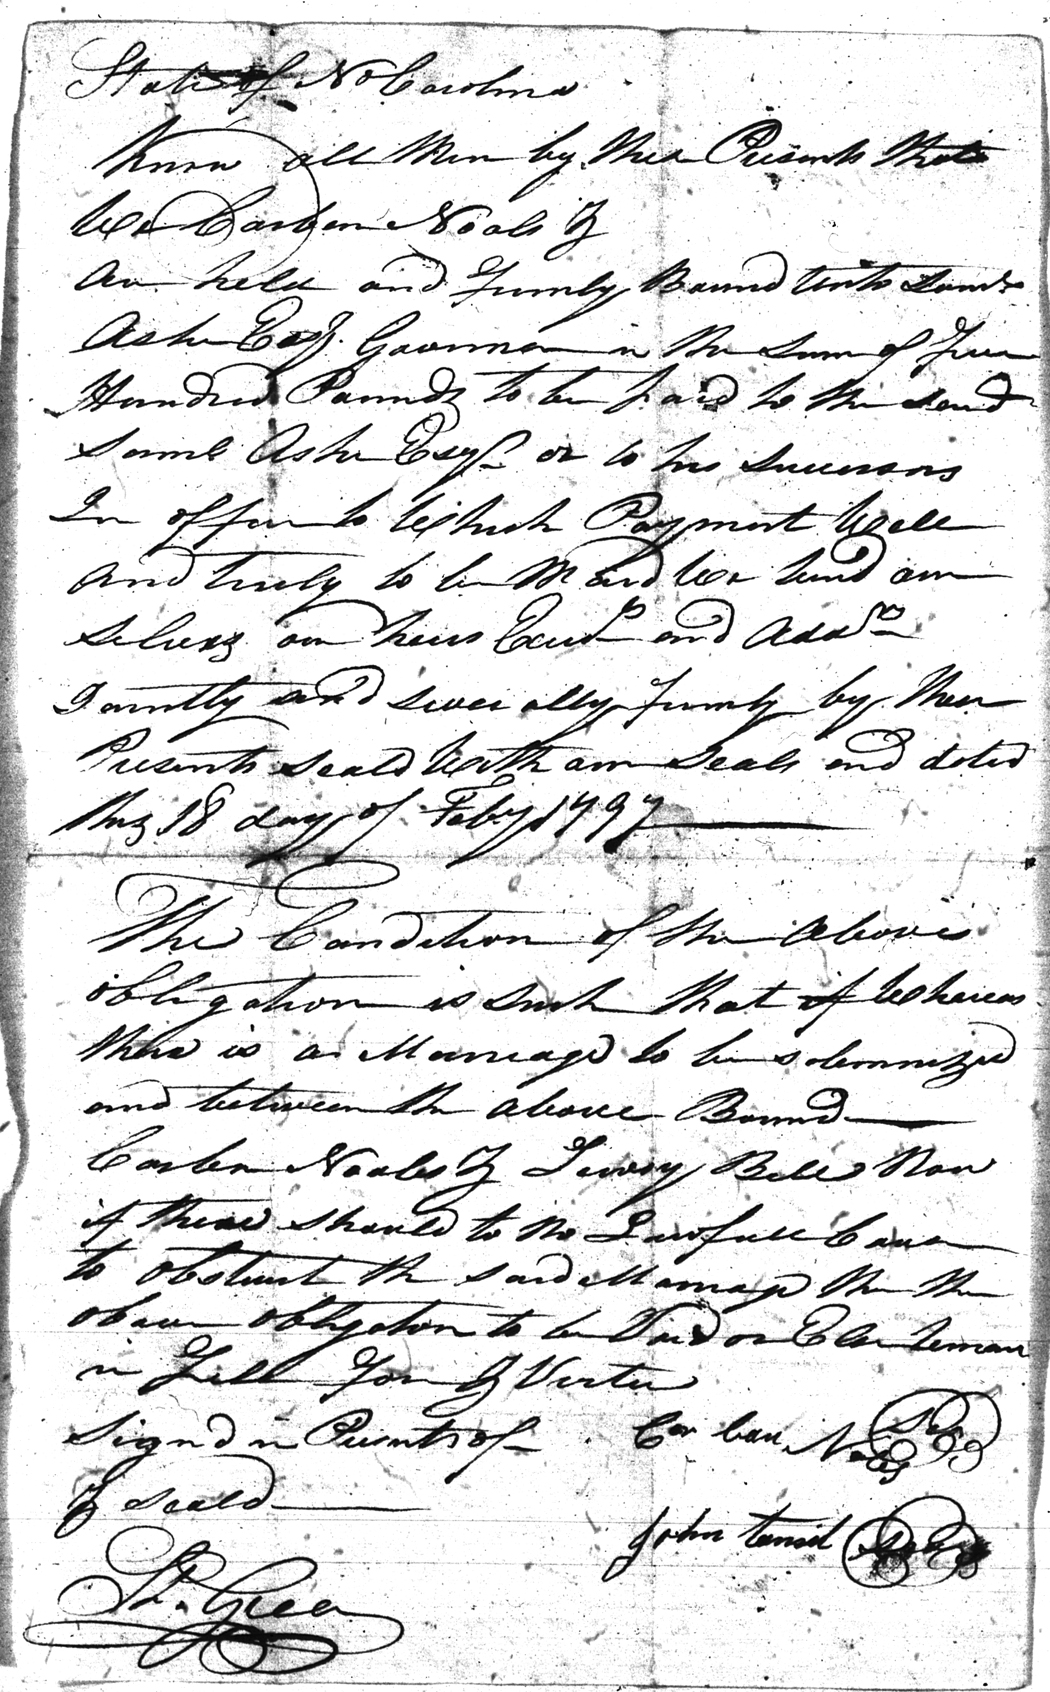 State of No Carolina
Know all Men by these Presents that
We Carben Noals &
Are held and firmly Bound unto Saml
Ashe Esqr. Governor in the sum of five
Hundred Pounds to be paid to the said
Saml Ashe Esqr or to his successors
In office to Which Payment Well
and truly to be Maid We bind our
selves our heirs Exers and Adds
Jointly and severally firmly by these
Presents seald With our seals and dated
this 18 day of Feby 1797
The Condition of the Above
obligation is such that if Whereas
there is a Marriage to be solemnized
and between the above Bound
Carben Noals & Bell Now
if there should to no Lawfull Cause
to obstruct the said Marriage then the
above obligation to be Void or Else Remain
in full for & Vertue
Signd in Presents of
& seald
Carban Noles Seal
John Seal
St. Green